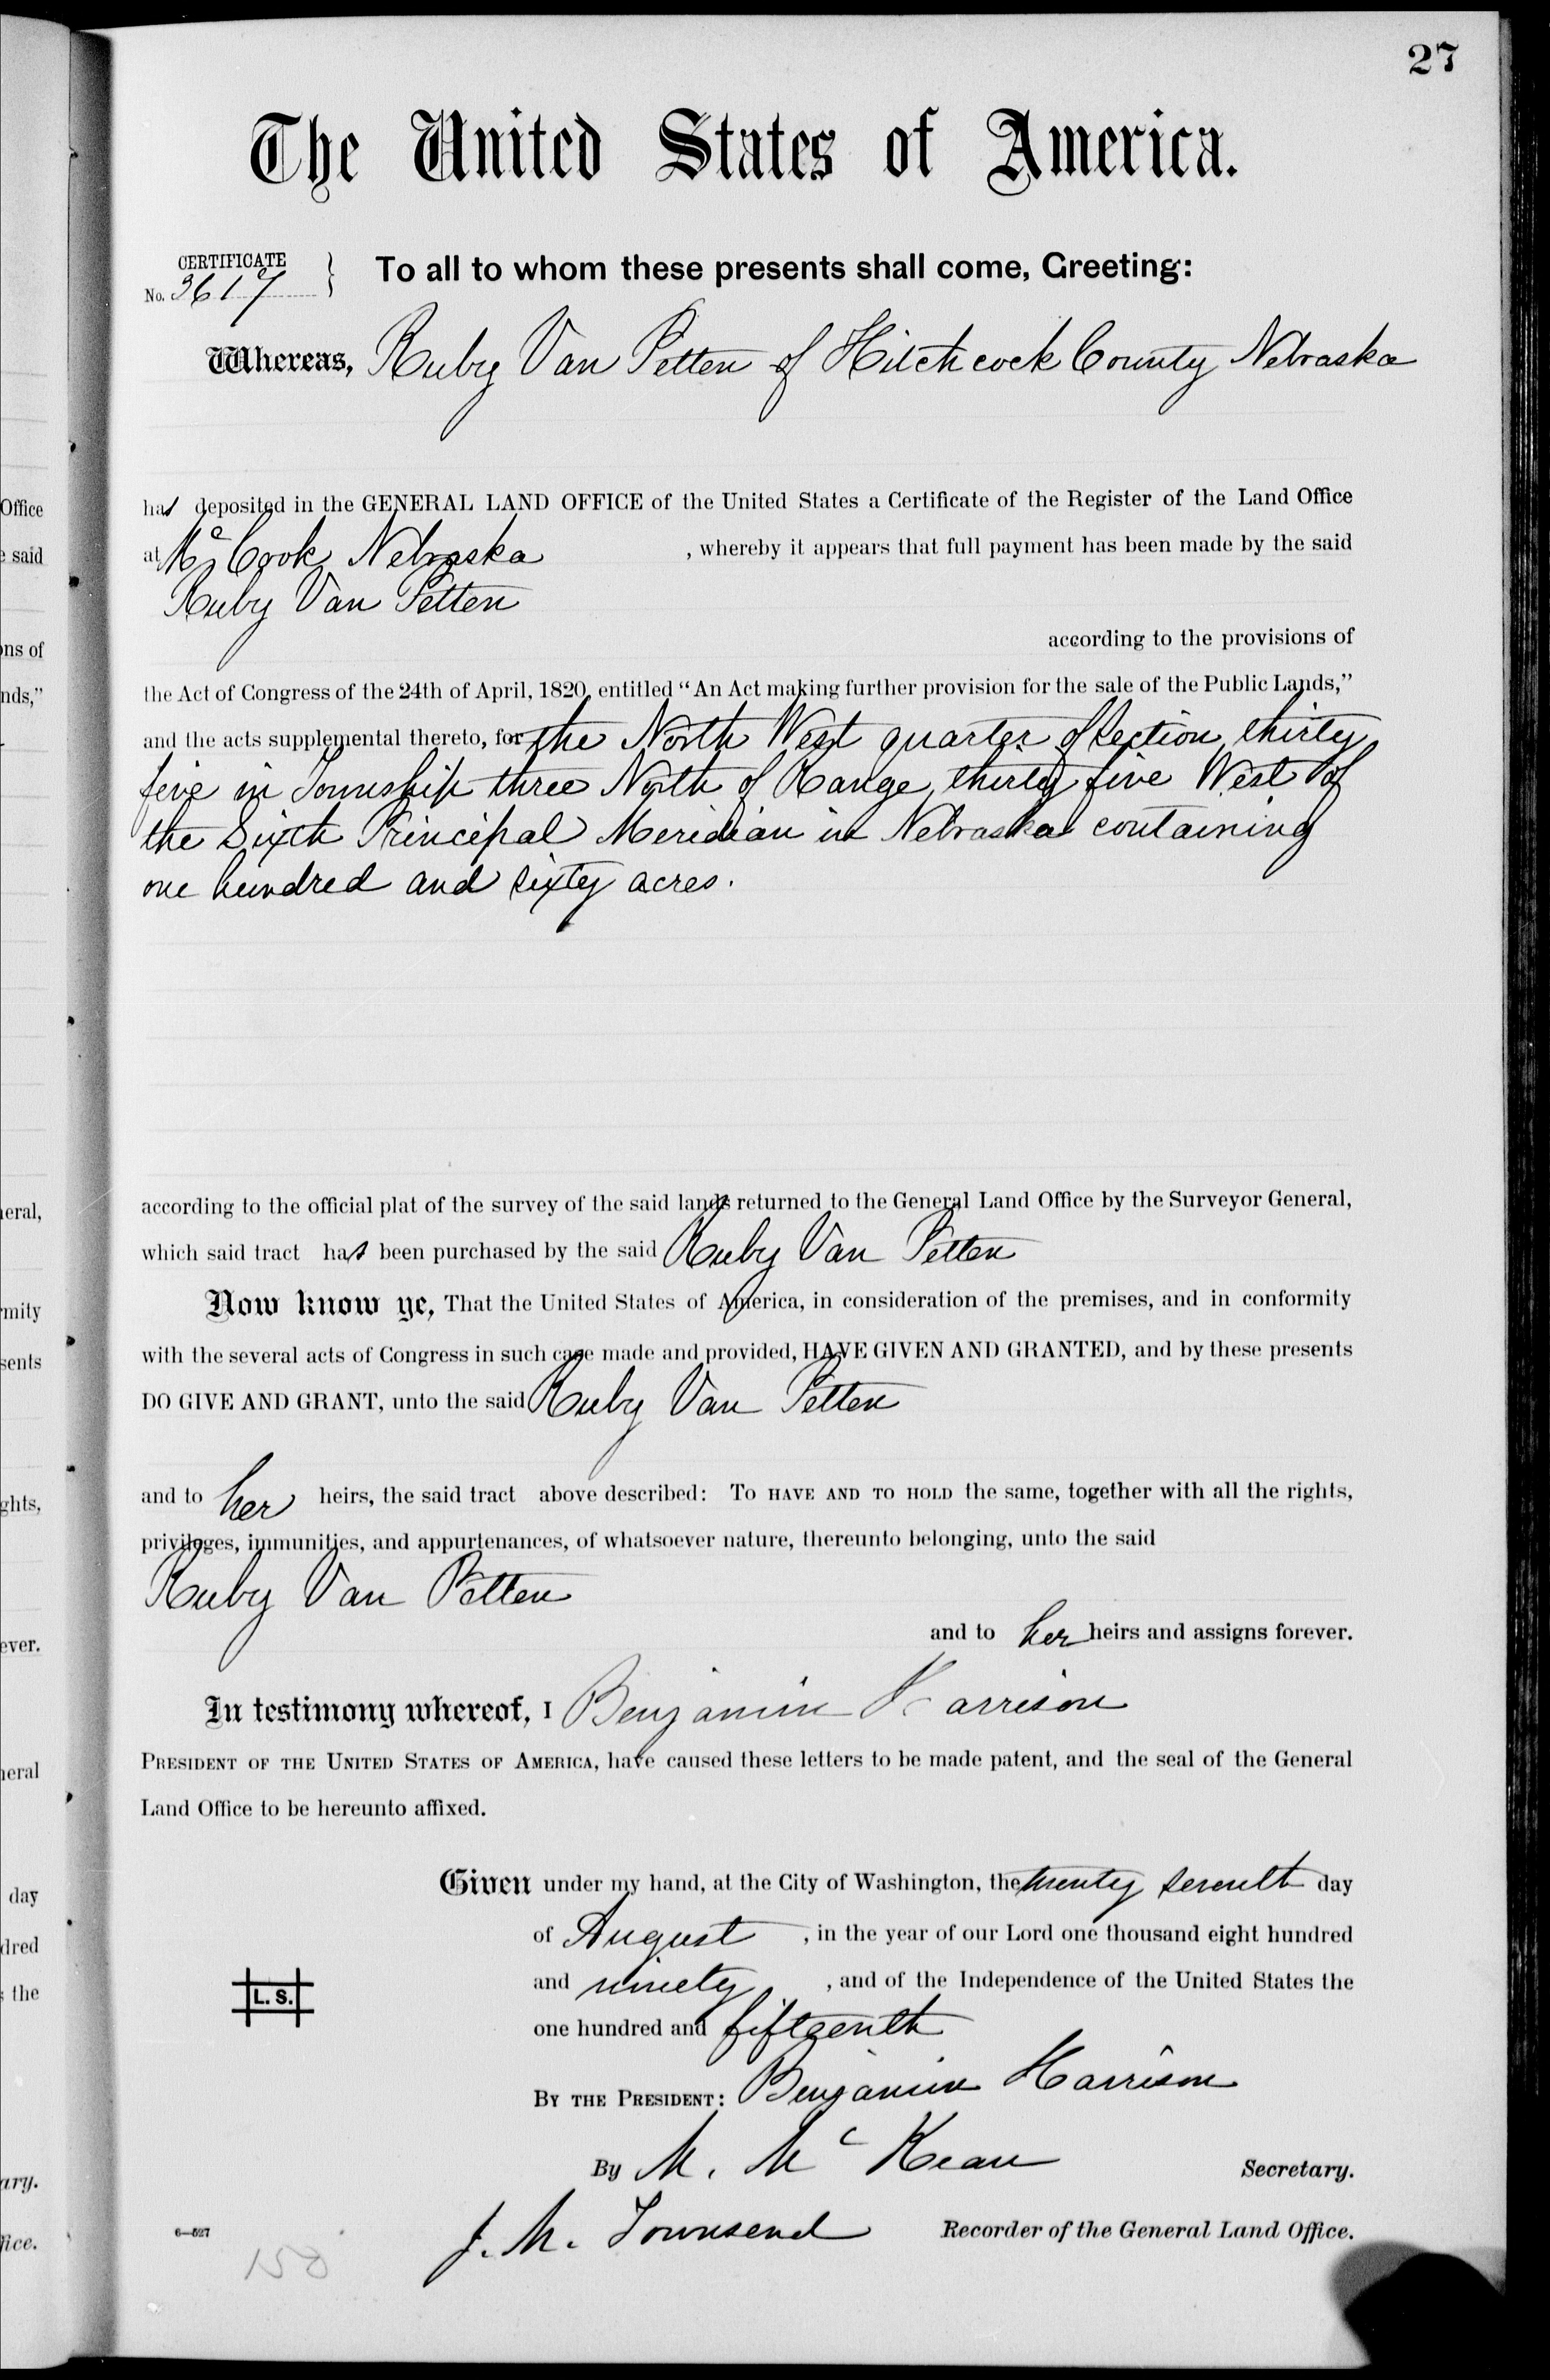 27
The United States of America.
CERTIFICATE
No. 3617
To all to whom these presents shall come, Greeting:
Whereas, Ruby Van Petten of Hitchcock County Nebraska
has deposited in the GENERAL LAND OFFICE of the United States a Certificate of the Register of the Land Office
at Mc Cook, Nebraska , whereby it appears that full payment has been made by the said
Ruby Van Petten
according to the provisions of
the Act of Congress of the 24th of April, 1820, entitled “An Act making further provision for the sale of the Public Lands,”
and the acts supplemental thereto, for the North West quarter of Section thirty
five in Township three North of Range thirty five West of
the Sixth Principal Meridian in Nebraska containing
one hundred and sixty acres.
according to the official plat of the survey of the said lands returned to the General Land Office by the Surveyor General,
which said tract has been purchased by the said Ruby Van Petten
Now know ye, That the United States of America, in consideration of the premises, and in conformity
with the several acts of Congress in such case made and provided, HAVE GIVEN AND GRANTED, and by these presents
DO GIVE AND GRANT, unto the said Ruby Van Petten
and to her heirs, the said tract above described: To HAVE AND TO HOLD the same, together with all the rights,
privileges, immunities, and appurtenances, of whatsoever nature, thereunto belonging, unto the said
Ruby Van Petten
and to her heirs and assigns forever.
In testimony whereof, I Benjamin Harrison
PRESIDENT OF THE UNITED STATES OF AMERICA, have caused these letters to be made patent, and the seal of the General
Land Office to be hereunto affixed.
Given under my hand, at the City of Washington, the twenty seventh day
of August , in the year of our Lord one thousand eight hundred
and ninety , and of the Independence of the United States the
one hundred and fifteenth
L. S.
BY THE PRESIDENT: Benjamin Harrison
By M. Mc Kean Secretary.
J. M. Townsend Recorder of the General Land Office.
6—527
150